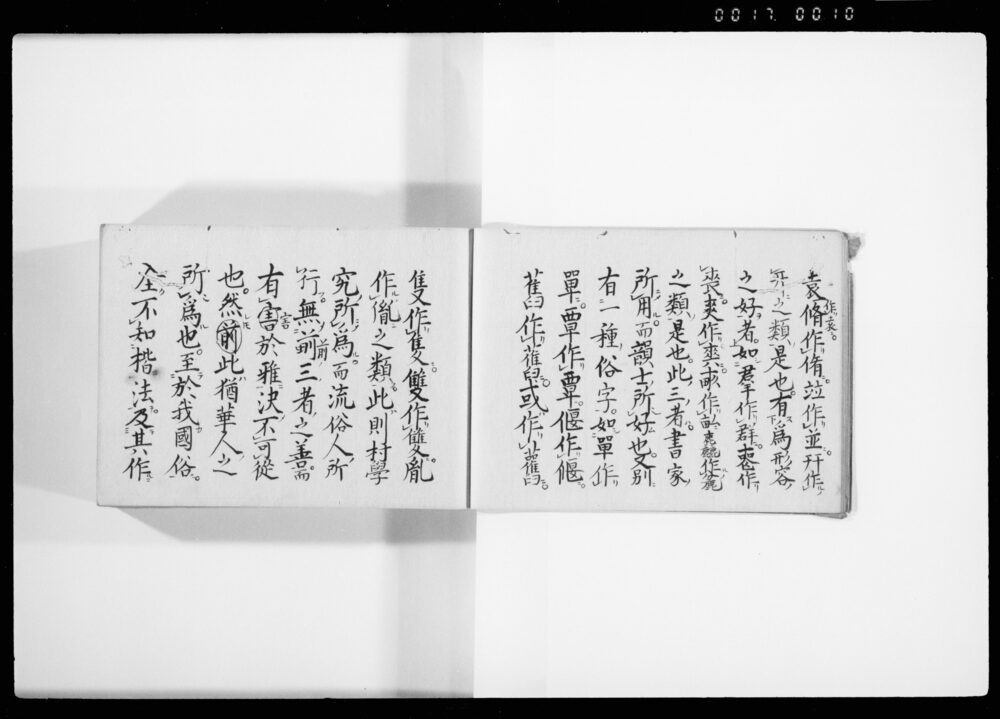 0017 0010
袁作袁。脩作脩竝作並幵作
幵之類是也。有爲形容
之好者。如羣作群。裵作
裴爽作爽畝作畝麤麁作麁
之類是也。此三者書家
所用而韻士所好也。又別
有一種俗字。如單作
單。覃作覃。偃作偃。
舊作舊。或作舊。
隻作隻。雙作雙。胤
作胤之類。此則村學
究所爲而流俗人所
行。無前三者之善而
有害於雅決不可從
也。然前此猶華人之
所爲也。至於我國俗
全不知揩法及其作